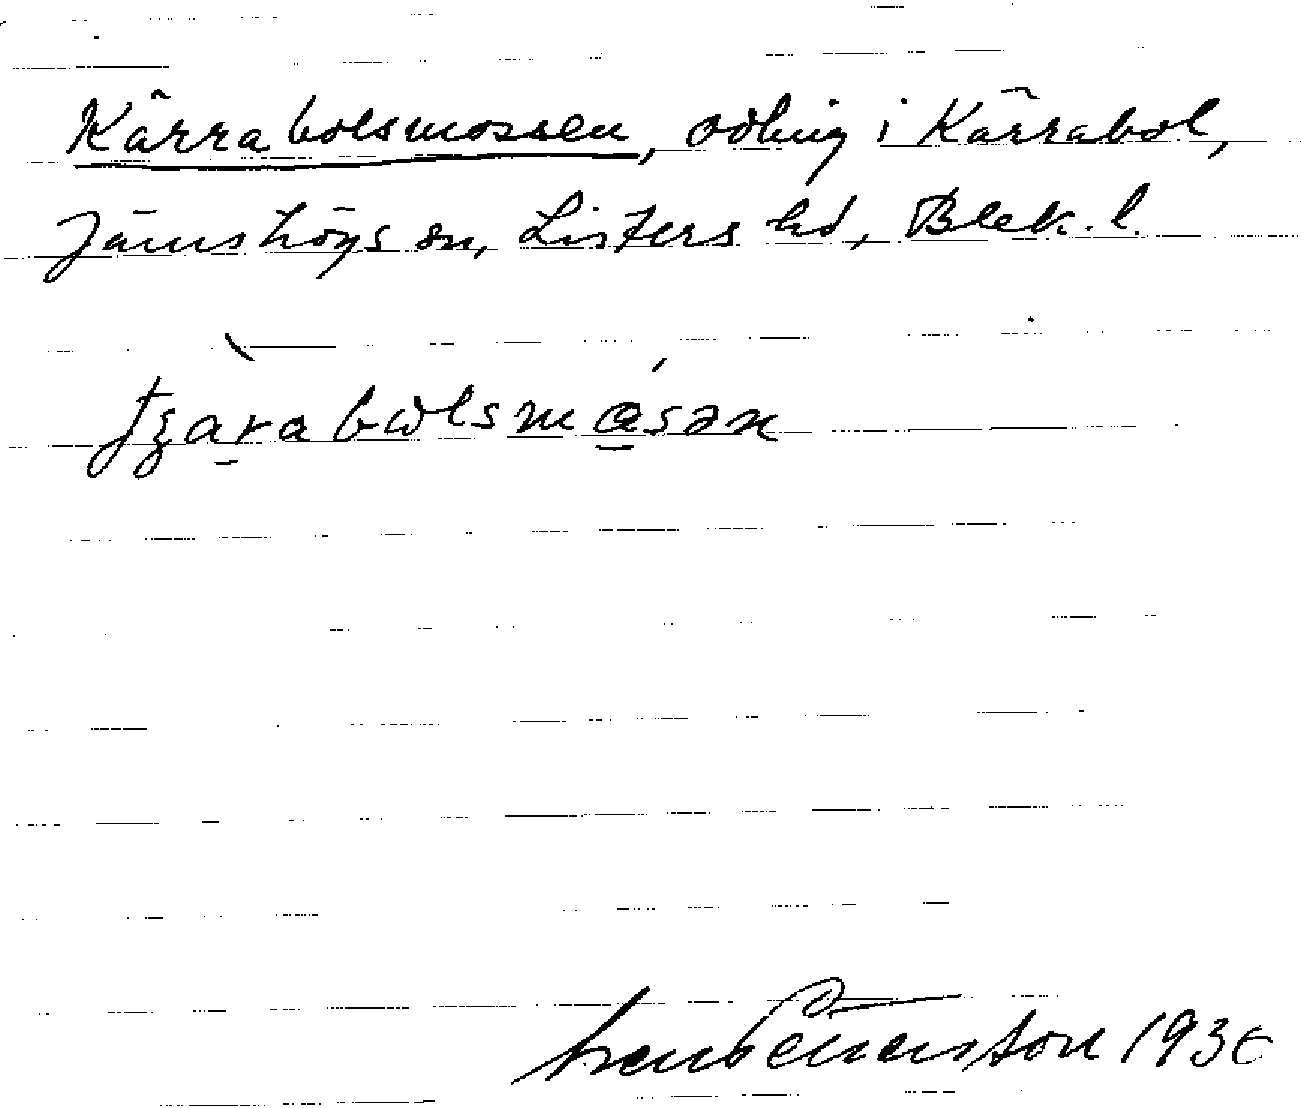 Kärrabolsmossen, odling i Kärrabol,
Jämshögs sn, Listers hd, Blek. l.
1936